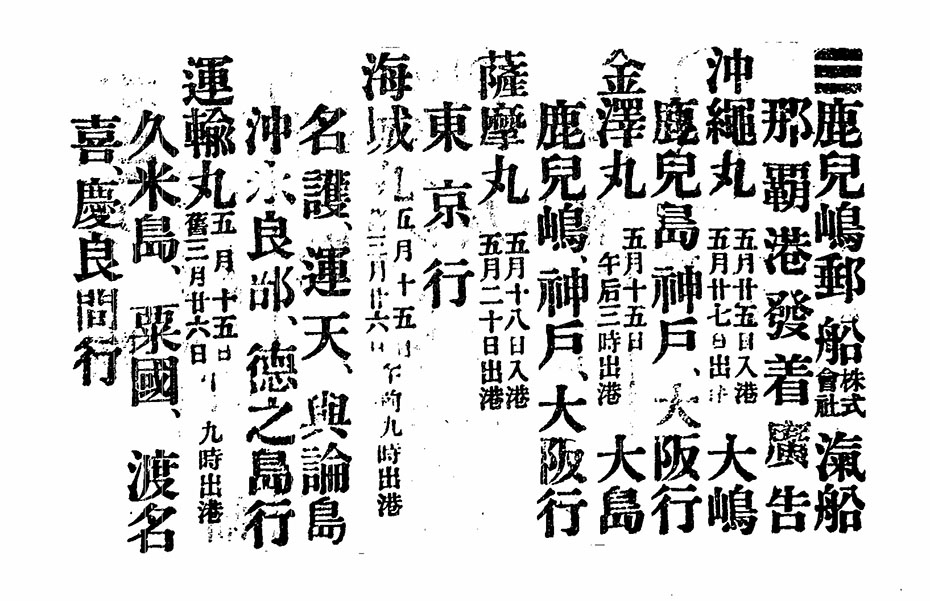 鹿兒嶋郵船株式會社汽船
那覇港發着廣告
沖繩丸 五月廿五日入港 五月廿七日出 大嶋
鹿兒島 神戶、大阪行
金澤丸 五月十五日 午后三時出港 大島
鹿兒嶋、神戶、大阪行
薩摩丸 五月十八日入港 五月二十日出港
東京行
海城 五月十五 三月廿六 九時出港
名護、運天、與論島
沖永良部、德之島行
運輸丸 五月十五日 舊三月廿六日 九時出港
久米島、粟國、渡名
喜、慶良間行